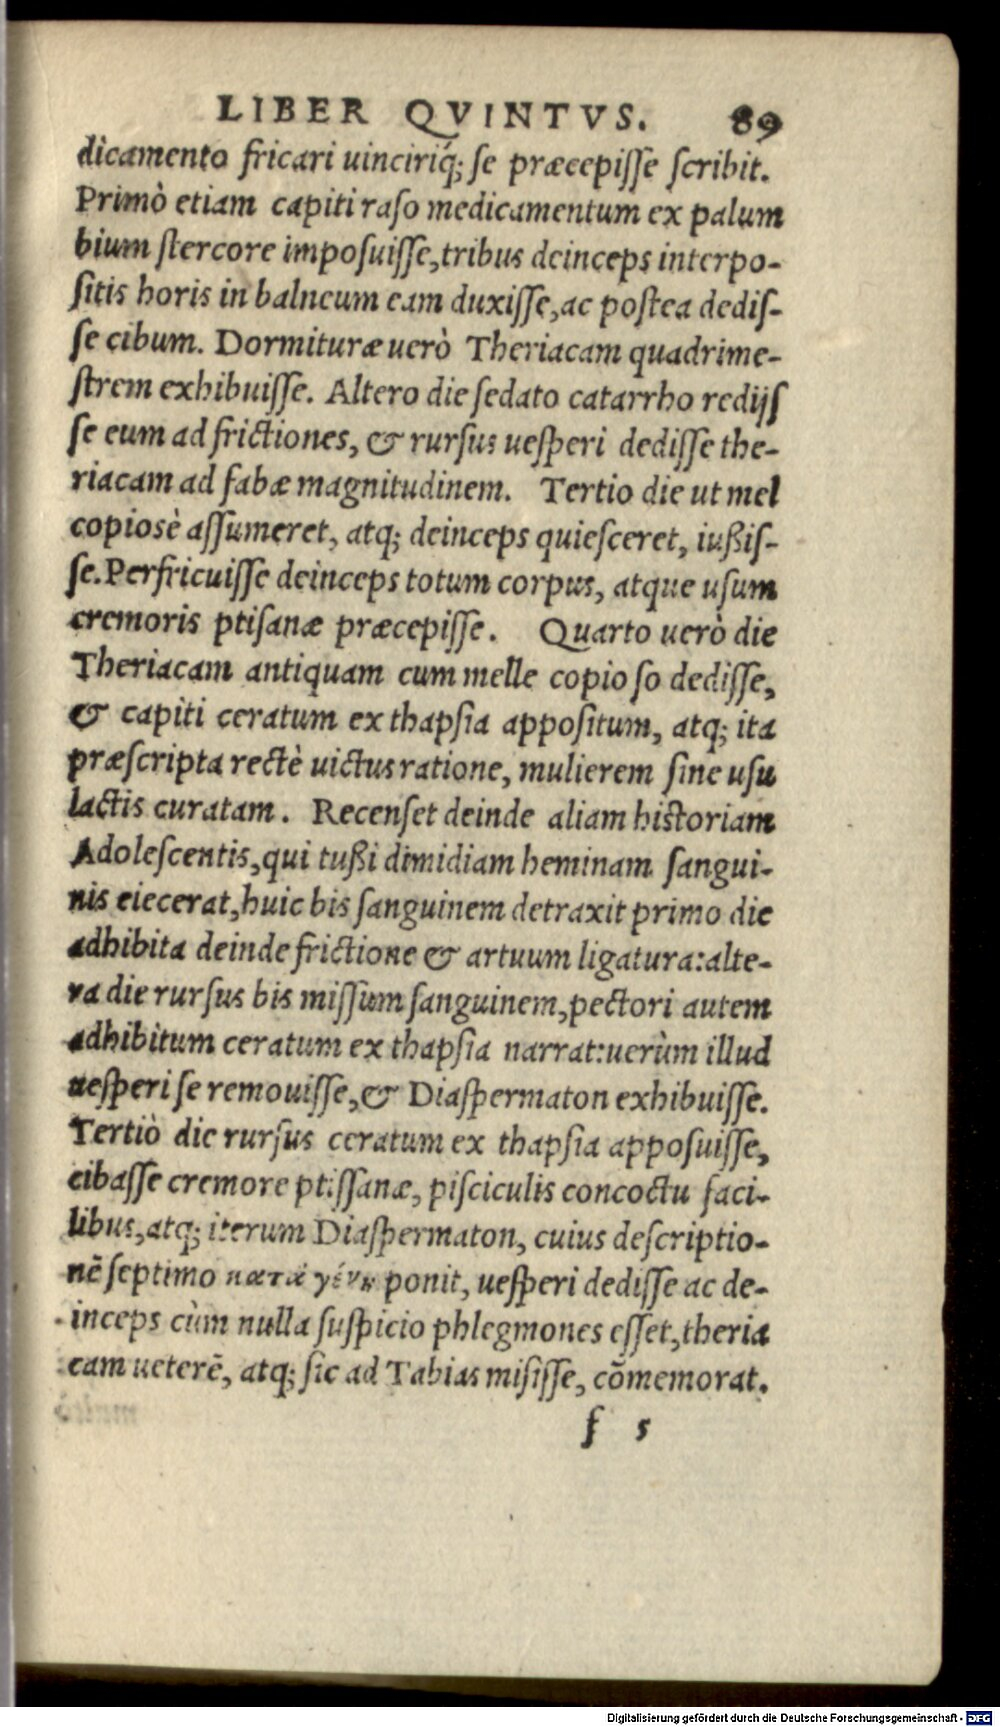 LIBER QVINTVS. 89
dicamento fricari uinciriq́; se præcepisse scribit.
Primò etiam capiti raso medicamentum ex palum
bium stercore imposuisse, tribus deinceps interpo-
sitis horis in balneum eam duxisse, ac postea dedis-
se cibum. Dormituræ uerò Theriacam quadrime-
strem exhibuisse. Altero die sedato catarrho redijs
se eum ad frictiones, & rursus uesperi dedisse the-
riacam ad fabæ magnitudinem. Tertio die ut mel
copiosè assumeret, atq; deinceps quiesceret, iußis-
se. Perfricuisse deinceps totum corpus, atque usum
cremoris ptisanæ præcepisse. Quarto uerò die
Theriacam antiquam cum melle copio so dedisse,
& capiti ceratum ex thapsia appositum, atq; ita
præscripta rectè uictus ratione, mulierem sine usu
lactis curatam. Recenset deinde aliam historiam
Adolescentis, qui tußi dimidiam heminam sangui-
nis eiecerat, huic bis sanguinem detraxit primo die
adhibita deinde frictione & artuum ligatura: alte-
ra die rursus bis missum sanguinem, pectori autem
adhibitum ceratum ex thapsia narrat: uerùm illud
uesperi se remouisse, & Diaspermaton exhibuisse.
Tertiò die rursus ceratum ex thapsia apposuisse,
cibasse cremore ptissanæ, pisciculis concoctu faci-
libus, atq; iterum Diaspermaton, cuius descriptio-
nē septimo κατὰ γένη ponit, uesperi dedisse ac de-
inceps cùm nulla suspicio phlegmones esset, theria
cam ueterē, atq; sic ad Tabias misisse, cōmemorat.
f 5
Digitalisierung gefördert durch die Deutsche Forschungsgemeinschaft - DFG